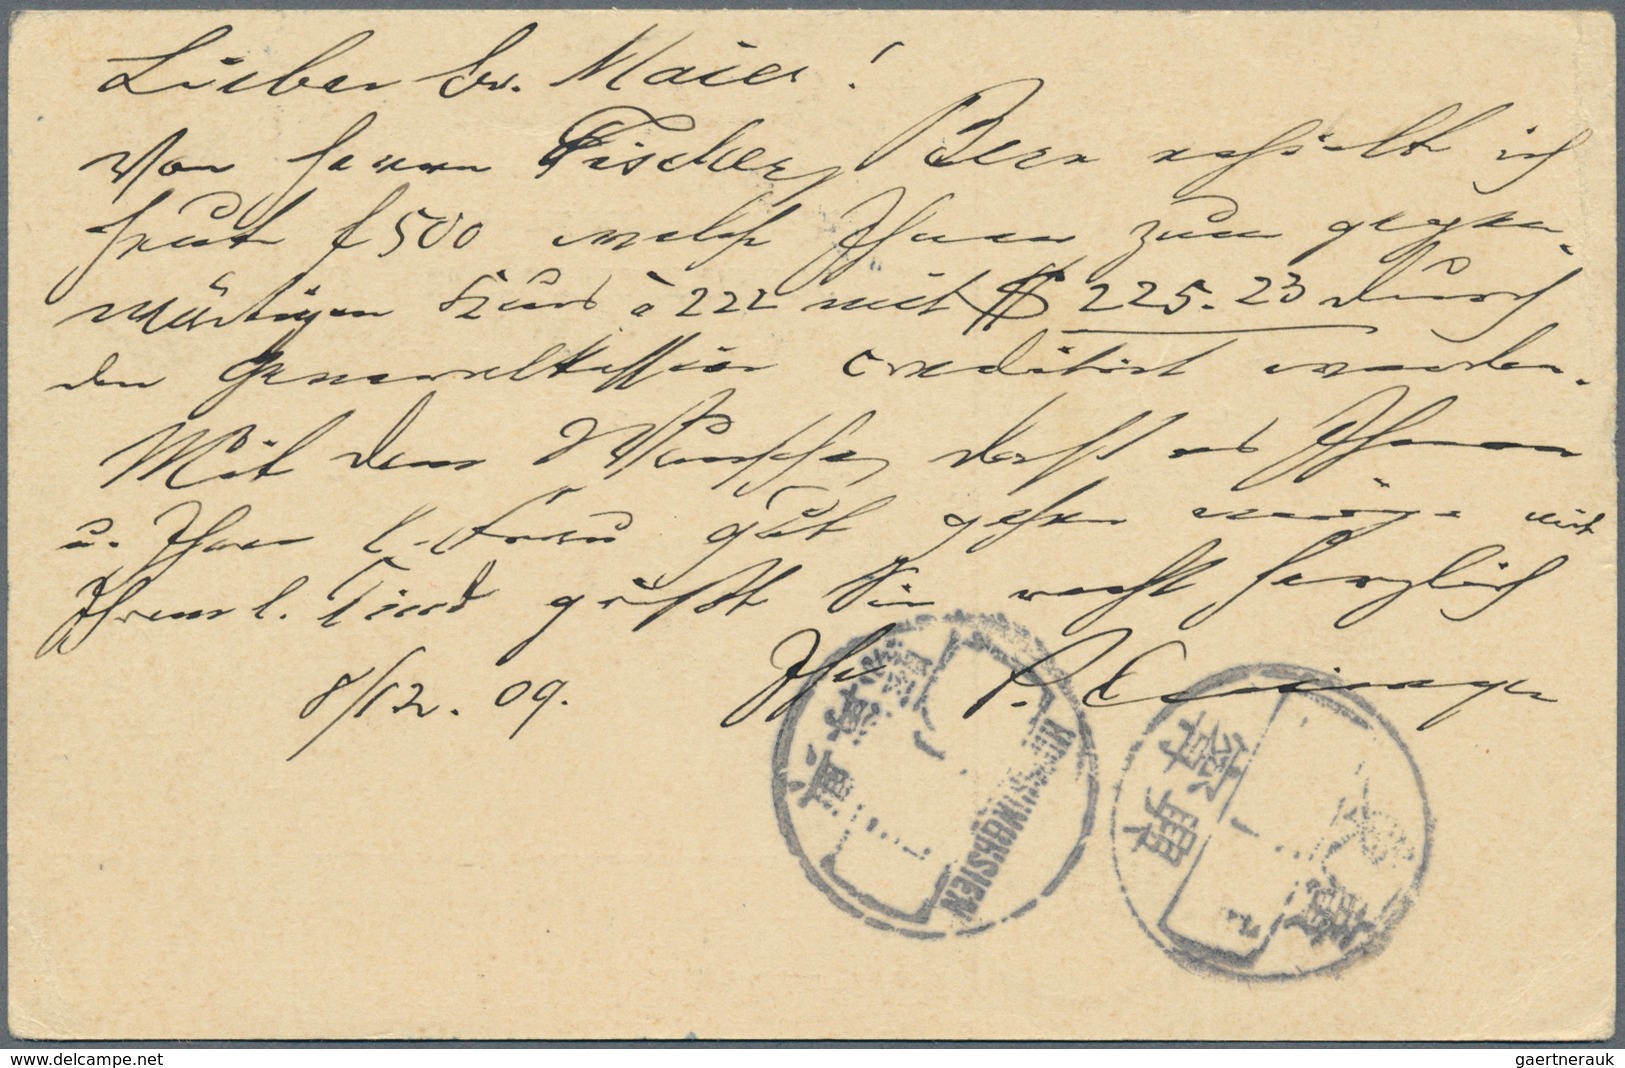 Lieber Br. Maier!
Von Herrn Fischer, Bern erhielt ich
heute f 500 welche Ihnen zum gegen-
wärtigen Kurs à 222 mit $ 225.23 durch
den Generalkassier creditirt werden.
Mit dem Wunsche, daß es Ihnen
u. Ihrer l. Frau gut gehen möge mit
Ihrem l. Kind grüßt Sie recht herzlich
8/12. 09. Ihr
嘉應
HINGNINGHSIEN
興寧
gaertnerauk @ delcampe.net